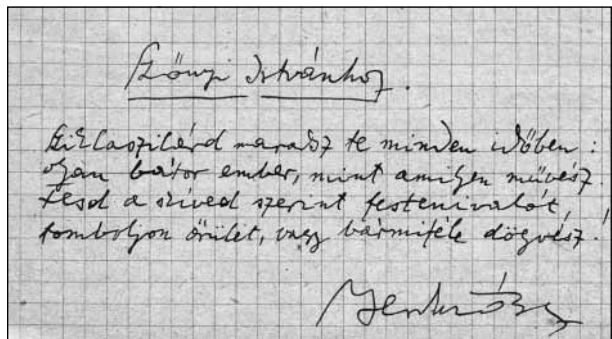 Szőnyi Istvánhoz.
Sziklaszilárd maradsz te minden időben:
olyan bátor ember, mint amilyen művész.
Fesd a szíved szerint festenivalót,
tomboljon őrület, vagy bármiféle dögvész!